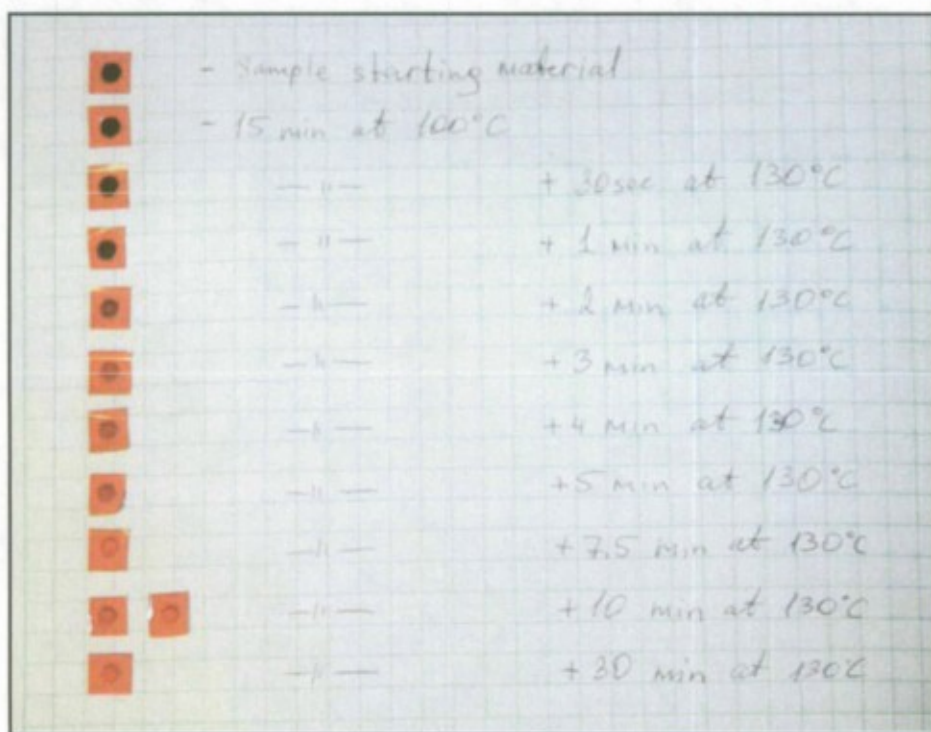 - Sample starting material
- 15 min at 100°C
—"— + 30sec at 130°C
—"— + 1 min at 130°C
—"— + 2 min at 130°C
—"— + 3 min at 130°C
—"— + 4 min at 130°C
—"— + 5 min at 130°C
—"— + 7.5 min at 130°C
—"— + 10 min at 130°C
—"— + 30 min at 130°C